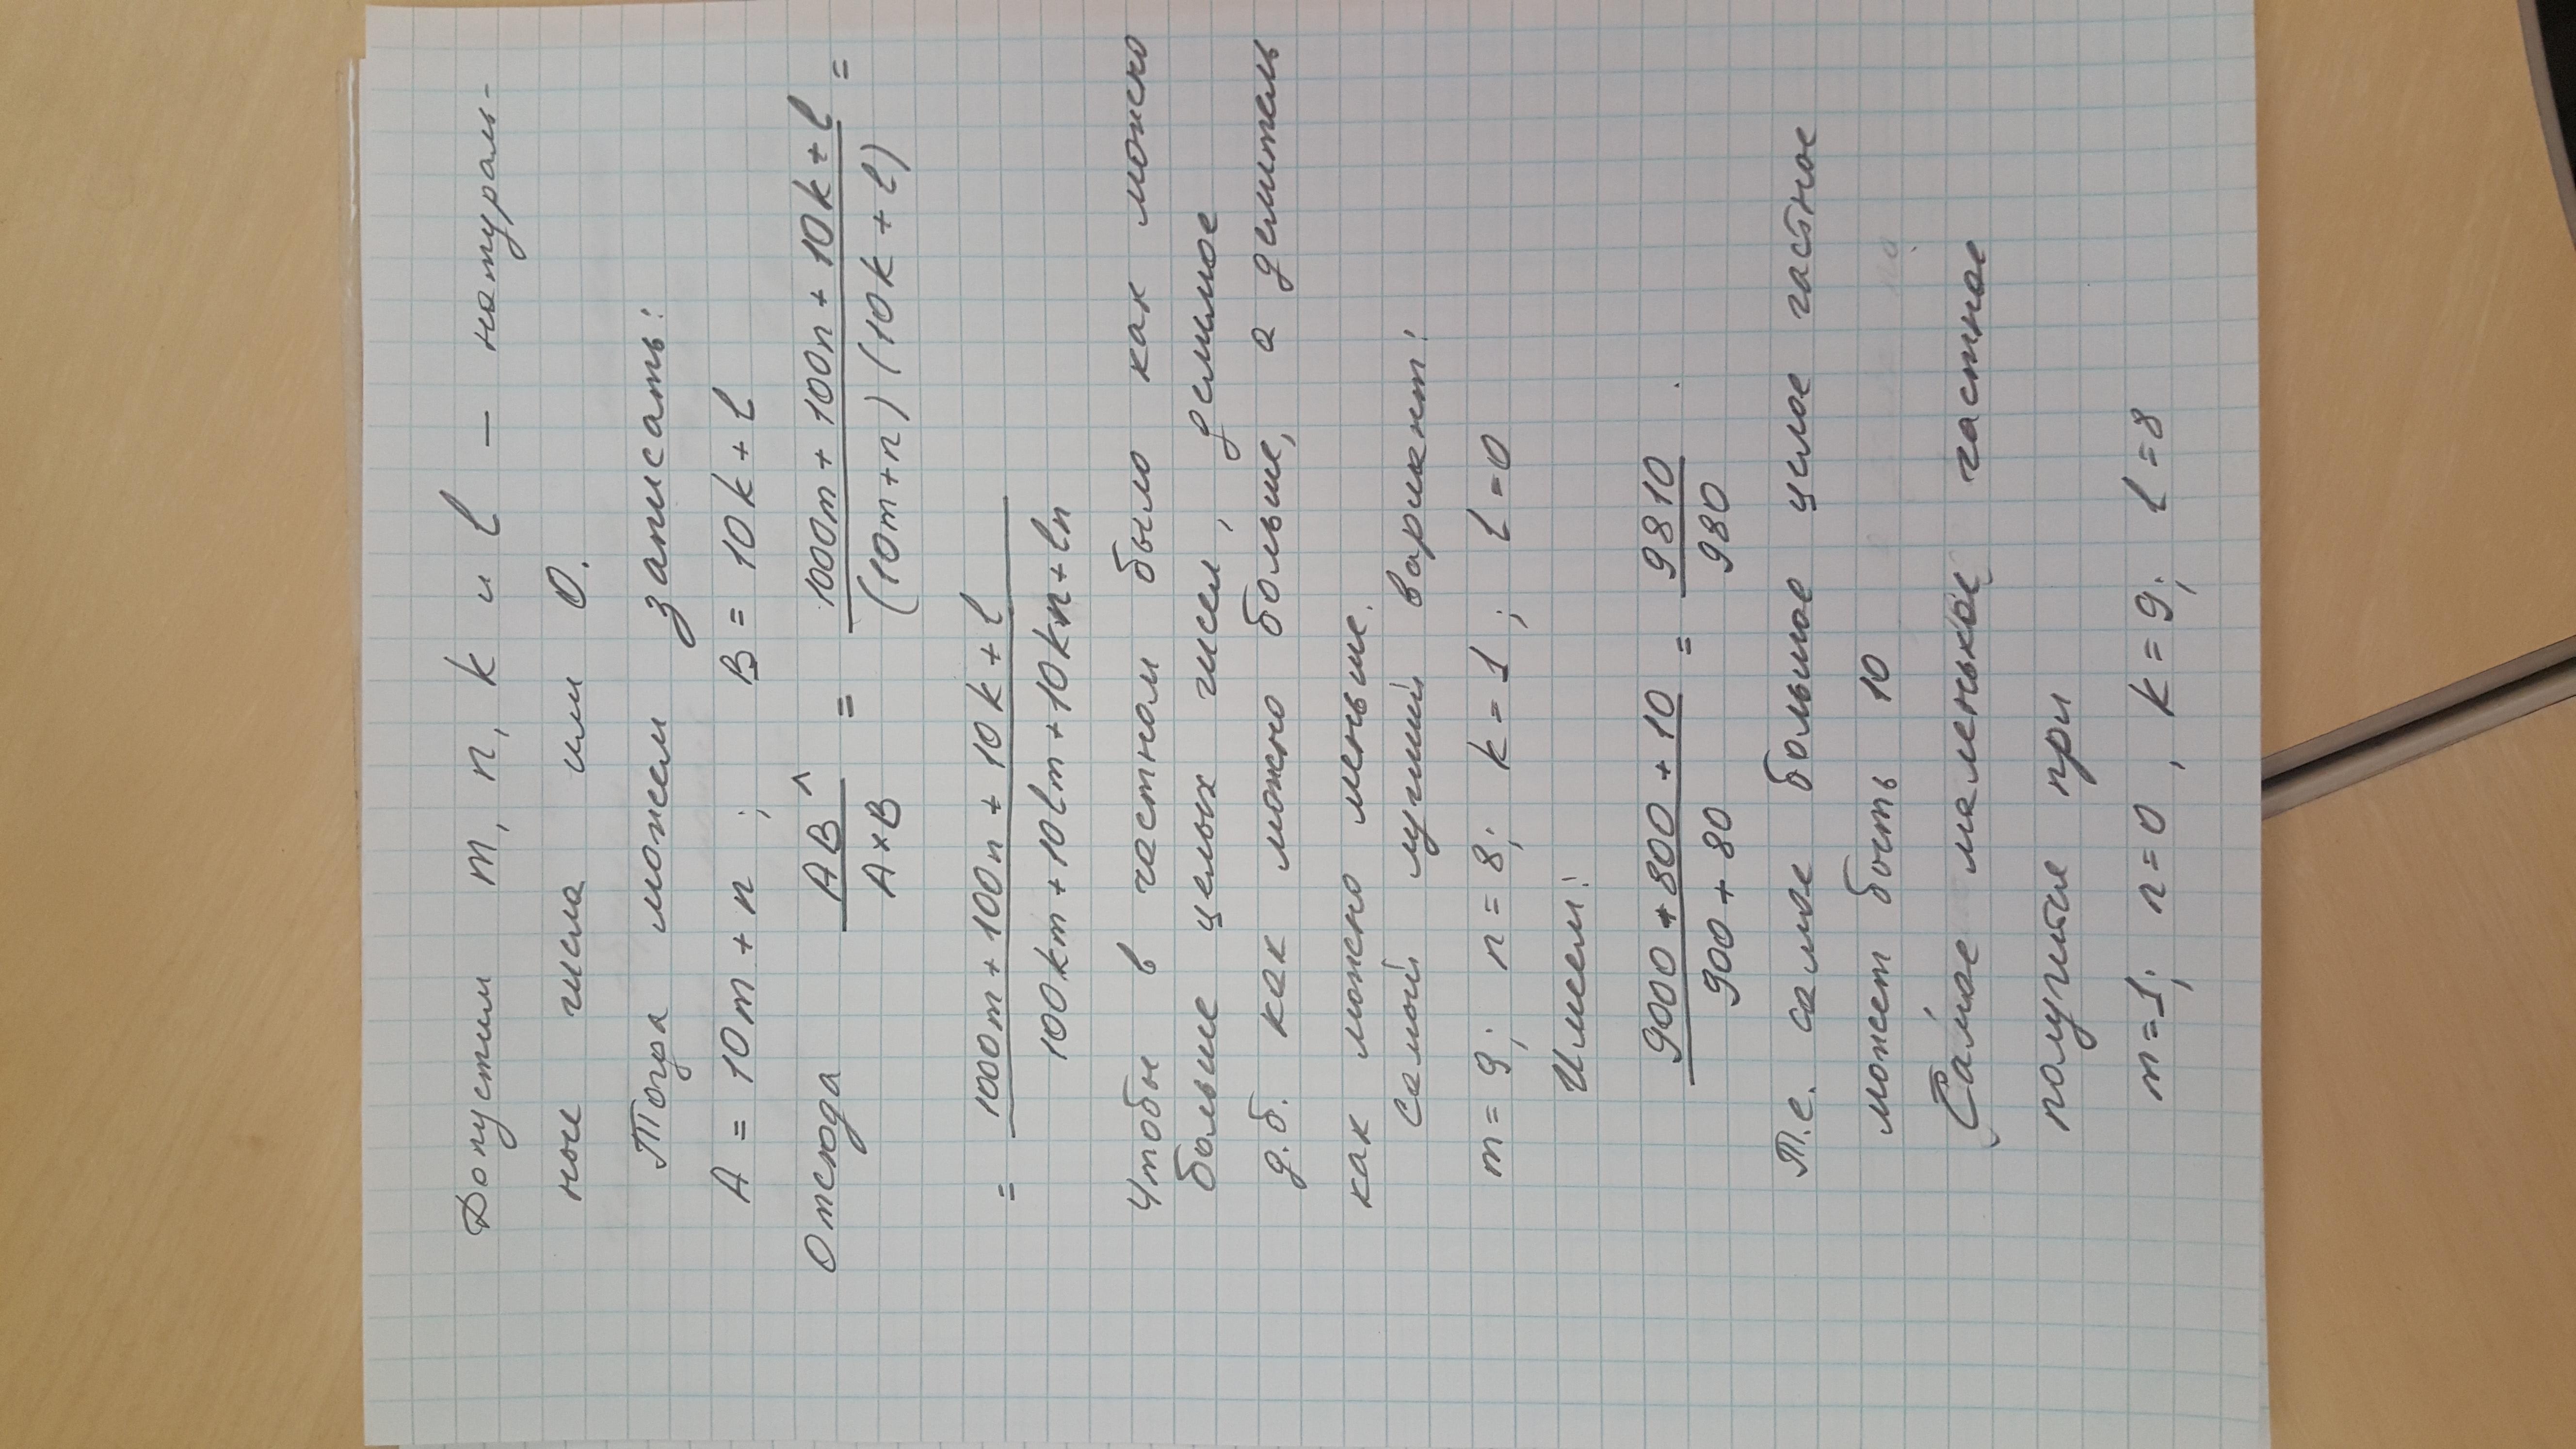 Допустим m, n, k и l — натураль-
ные числа или 0.
Тогда можем записать:
A = 10m + n ; B = 10k + l
Отсюда AB^ / A×B = 1000m + 100n + 10k + l / (10m+n) (10k + l) =
= 1000m + 100n + 10k + l / 100km + 10lm + 10kn + ln
Чтобы в частном было как можно
больше целых чисел, делимое
д.б. как можно больше, а делитель
как можно меньше.
Самый лучший вариант:
m = 9; n = 8; k = 1; l = 0
Имеем:
9000 + 800 + 10 / 900 + 80 = 9810 / 980
Т.е. самое большое целое частное
может быть 10
Самое маленькое частное
получится при
m = 1; n = 0, k = 9; l = 8